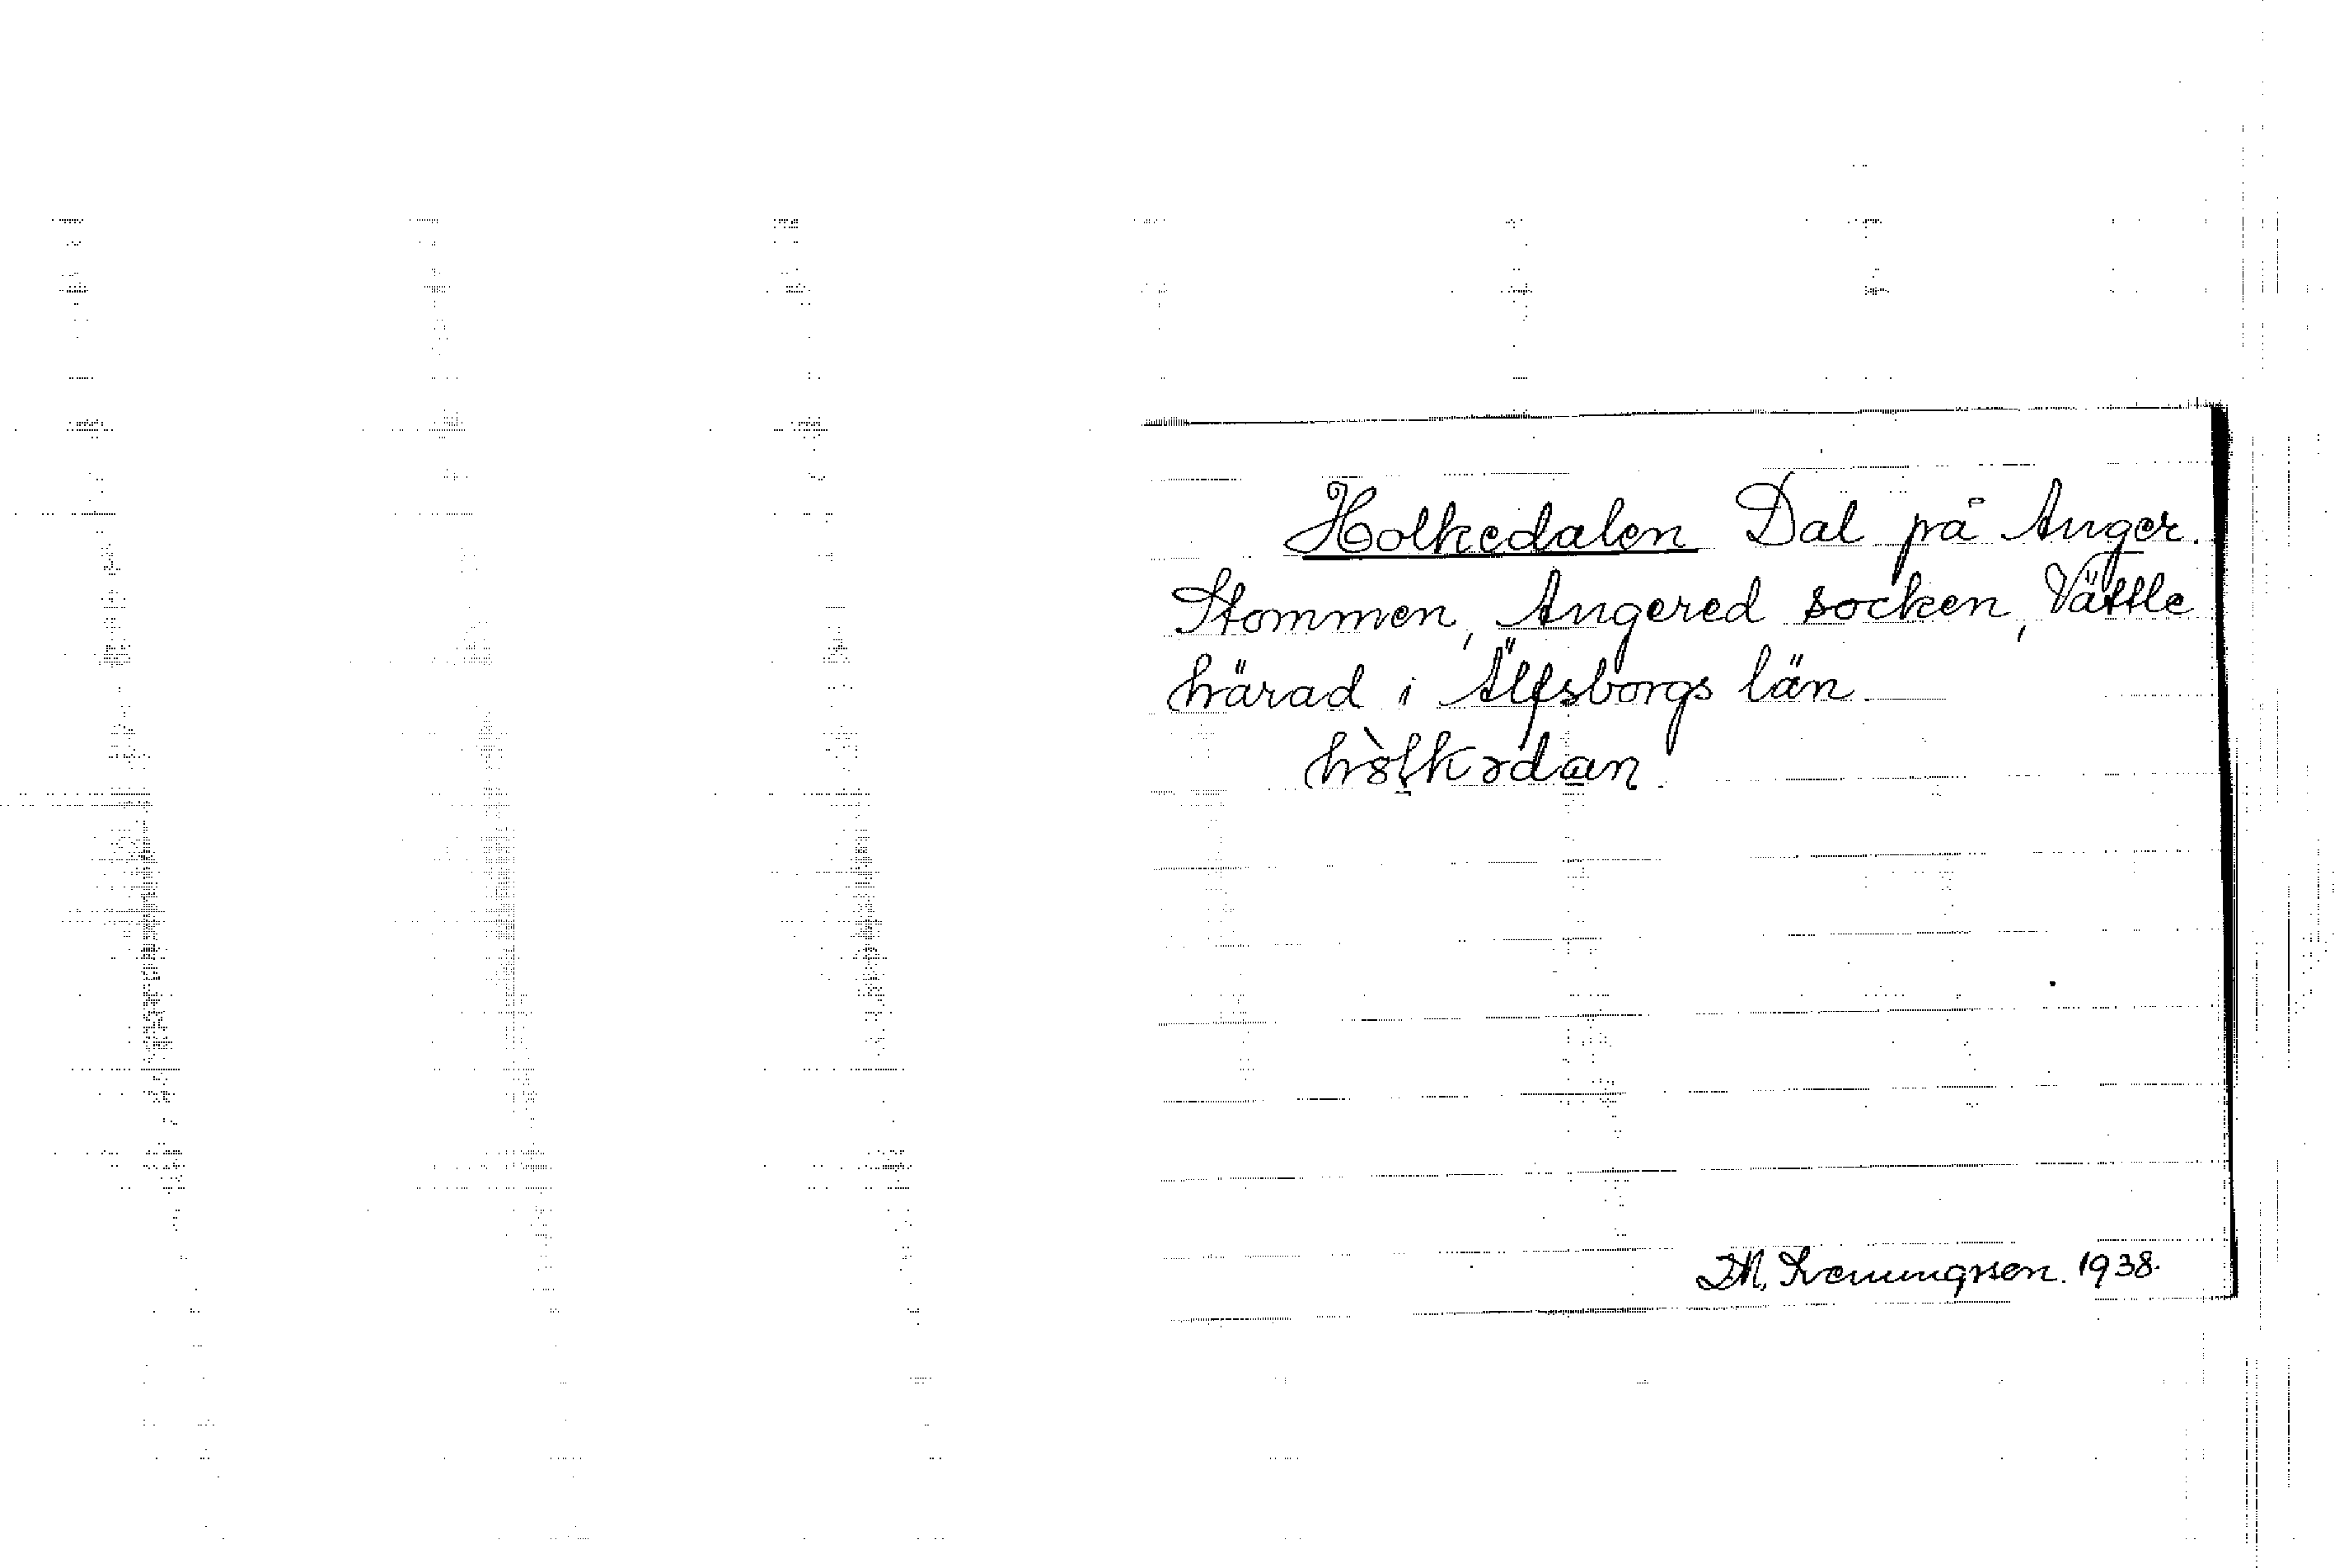 Holkedalen Dal på Anger.
Stommen, Angered socken, Vättle
härad i Älfsborgs län.
1938.